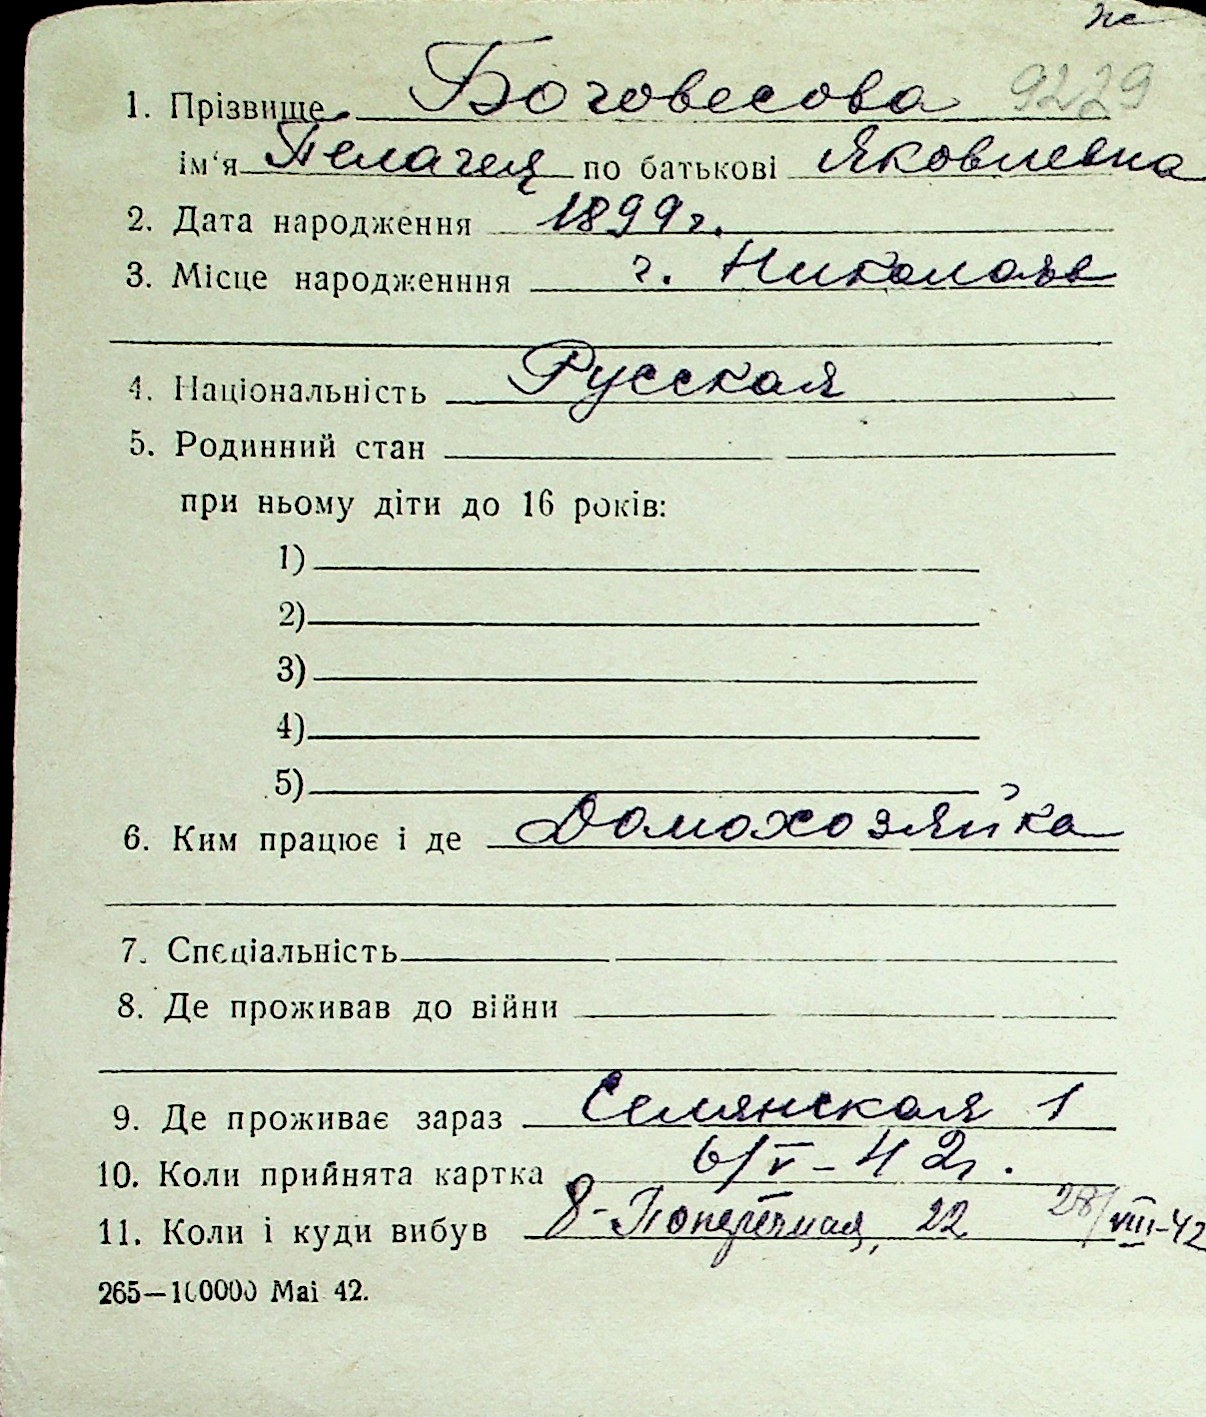 же
1. Прізвище Боговесова 9229
ім'я Пелагея по батькові Яковлевна
2. Дата народження 1899 г.
3. Місце народженння г. Николаев
4. Національність Русская
5. Родинний стан
при ньому діти до 16 років:
1)
2)
3)
4)
5)
6. Ким працює і де Домохозяйка
7. Спєціальність
8. Де проживав до війни
9. Де проживає зараз Селянская 1
10. Коли прийнята картка 6/V-42 г.
11. Коли і куди вибув 8-Поперечная, 22 28/VIII-42
265—100000 Mai 42.